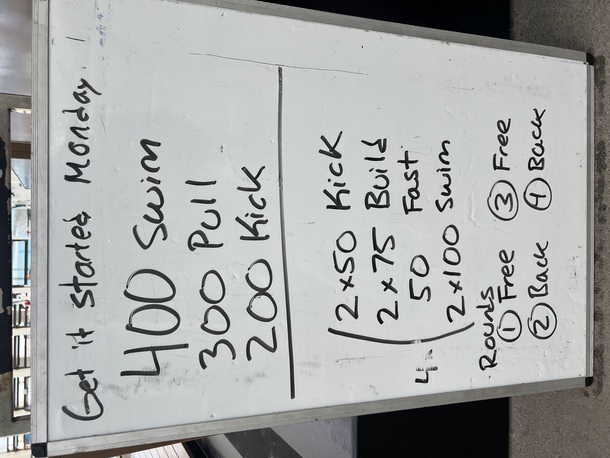 Get it started Monday
400 Swim
300 Pull
200 Kick
2x50 Kick
2x75 Build
4.
50 Fast
2x100 Swim
Rounds
① Free ③ Free
② Back ④ Back